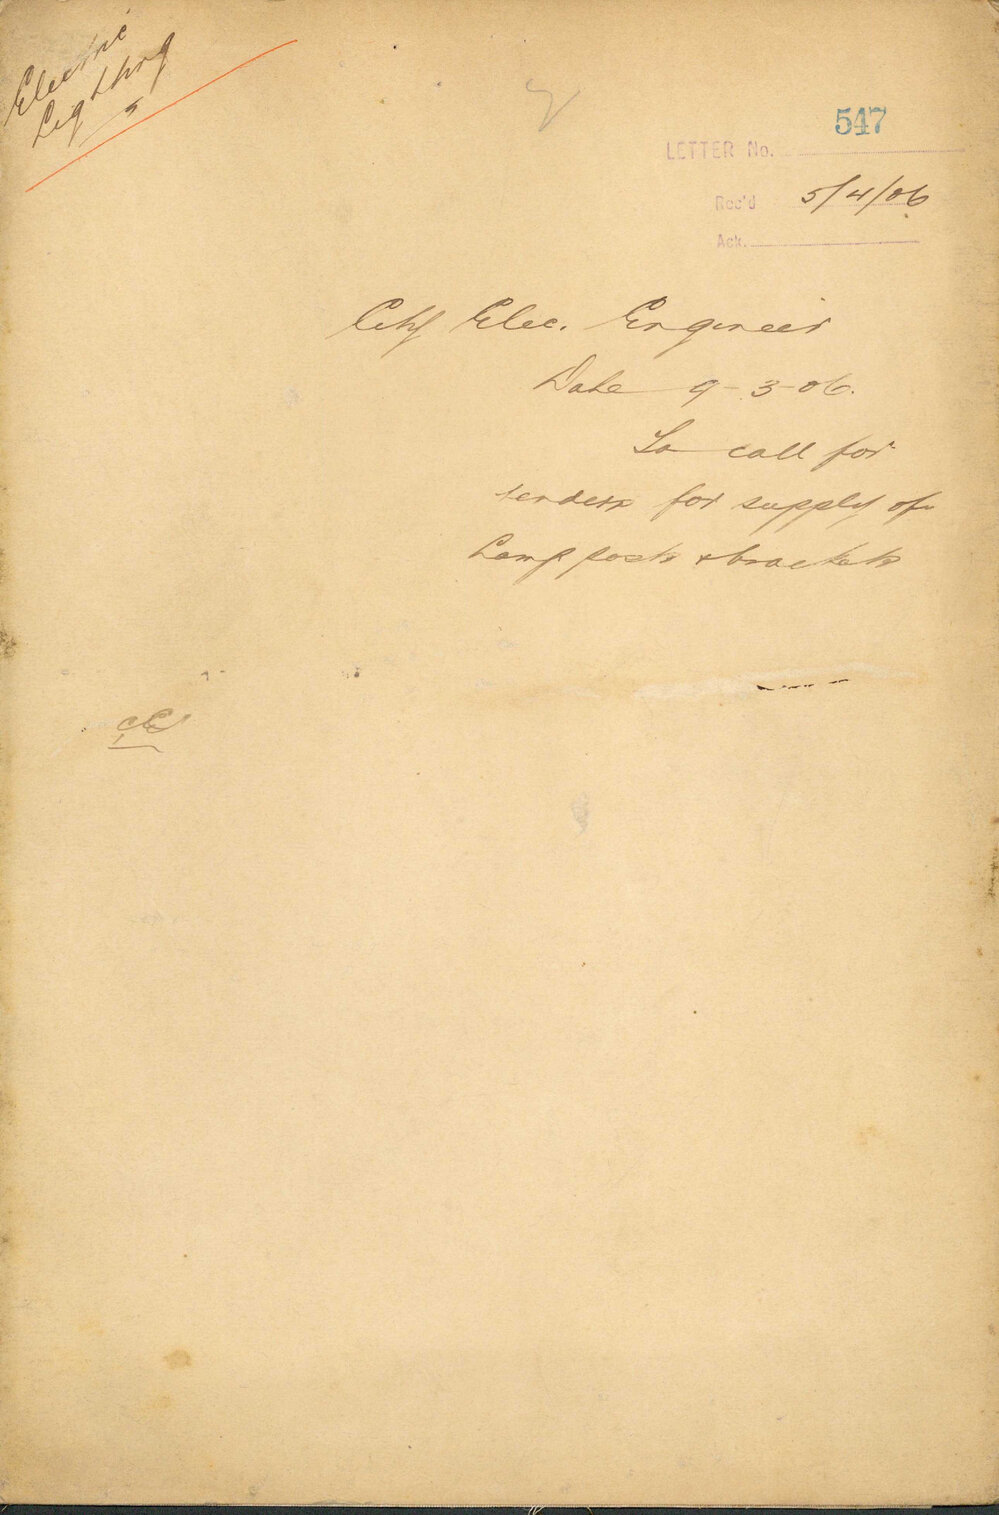 Electric
Lighting
547
LETTER No.
Rec'd 5/4/06
Ack.
City Elec. Engineer
Date 9-3-06.
To call for
tenders for supply of
Lamp posts & brackets